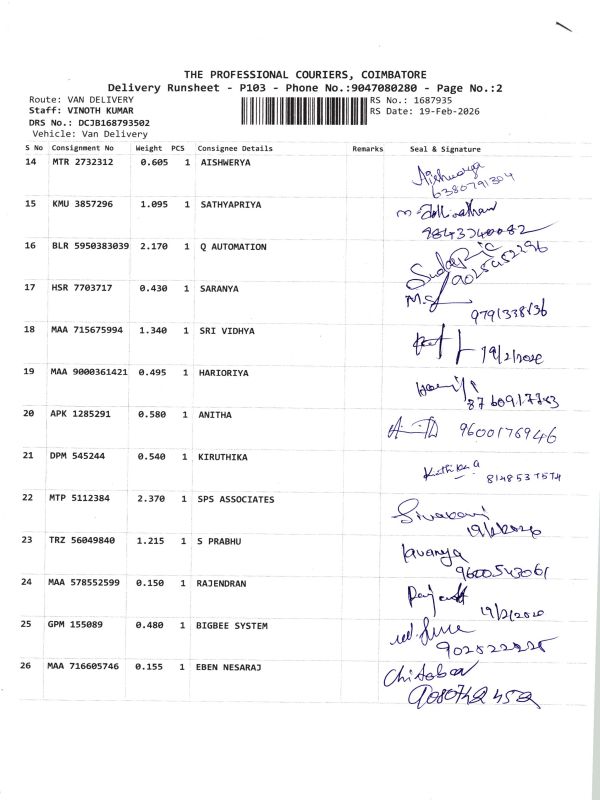 THE PROFESSIONAL COURIERS, COIMBATORE
Delivery Runsheet - P103 - Phone No.:9047080280 - Page No.:2
Route: VAN DELIVERY RS No.: 1687935
Staff: VINOTH KUMAR RS Date: 19-Feb-2026
DRS No.: DCJB168793502
Vehicle: Van Delivery
S No Consignment No Weight PCS Consignee Details Remarks Seal & Signature
14 MTR 2732312 0.605 1 AISHWERYA Aishwarya
6380791304
15 KMU 3857296 1.095 1 SATHYAPRIYA
9843740082
16 BLR 5950383039 2.170 1 Q AUTOMATION
9025952296
17 HSR 7703717 0.430 1 SARANYA
9791338836
18 MAA 715675994 1.340 1 SRI VIDHYA
19/2/2026
19 MAA 9000361421 0.495 1 HARIORIYA
8760917783
20 APK 1285291 0.580 1 ANITHA 9600176946
21 DPM 545244 0.540 1 KIRUTHIKA
8148537574
22 MTP 5112384 2.370 1 SPS ASSOCIATES
19/2/2026
23 TRZ 56049840 1.215 1 S PRABHU Lavanya
9600543061
24 MAA 578552599 0.150 1 RAJENDRAN
19/2/2020
25 GPM 155089 0.480 1 BIGBEE SYSTEM
26 MAA 716605746 0.155 1 EBEN NESARAJ